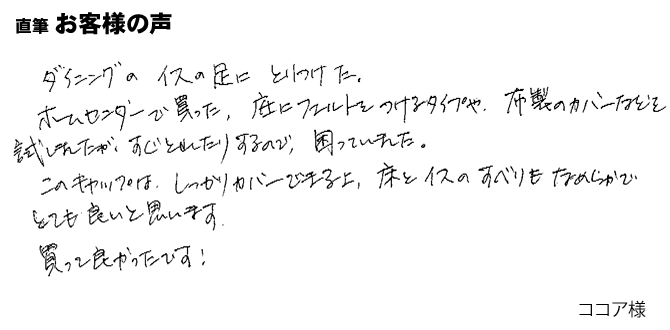 直筆 お客様の声
ダイニングの イスの足に とりつけた。
ホームセンターで買った、底にフェルトをつけるタイプや、布製のカバーなどを
試しましたが、すぐとれたりするので、困っていました。
このキャップは、しっかりカバーできる上、床とイスのすべりもなめらかで
とても良いと思います。
買って良かったです!
ココア様